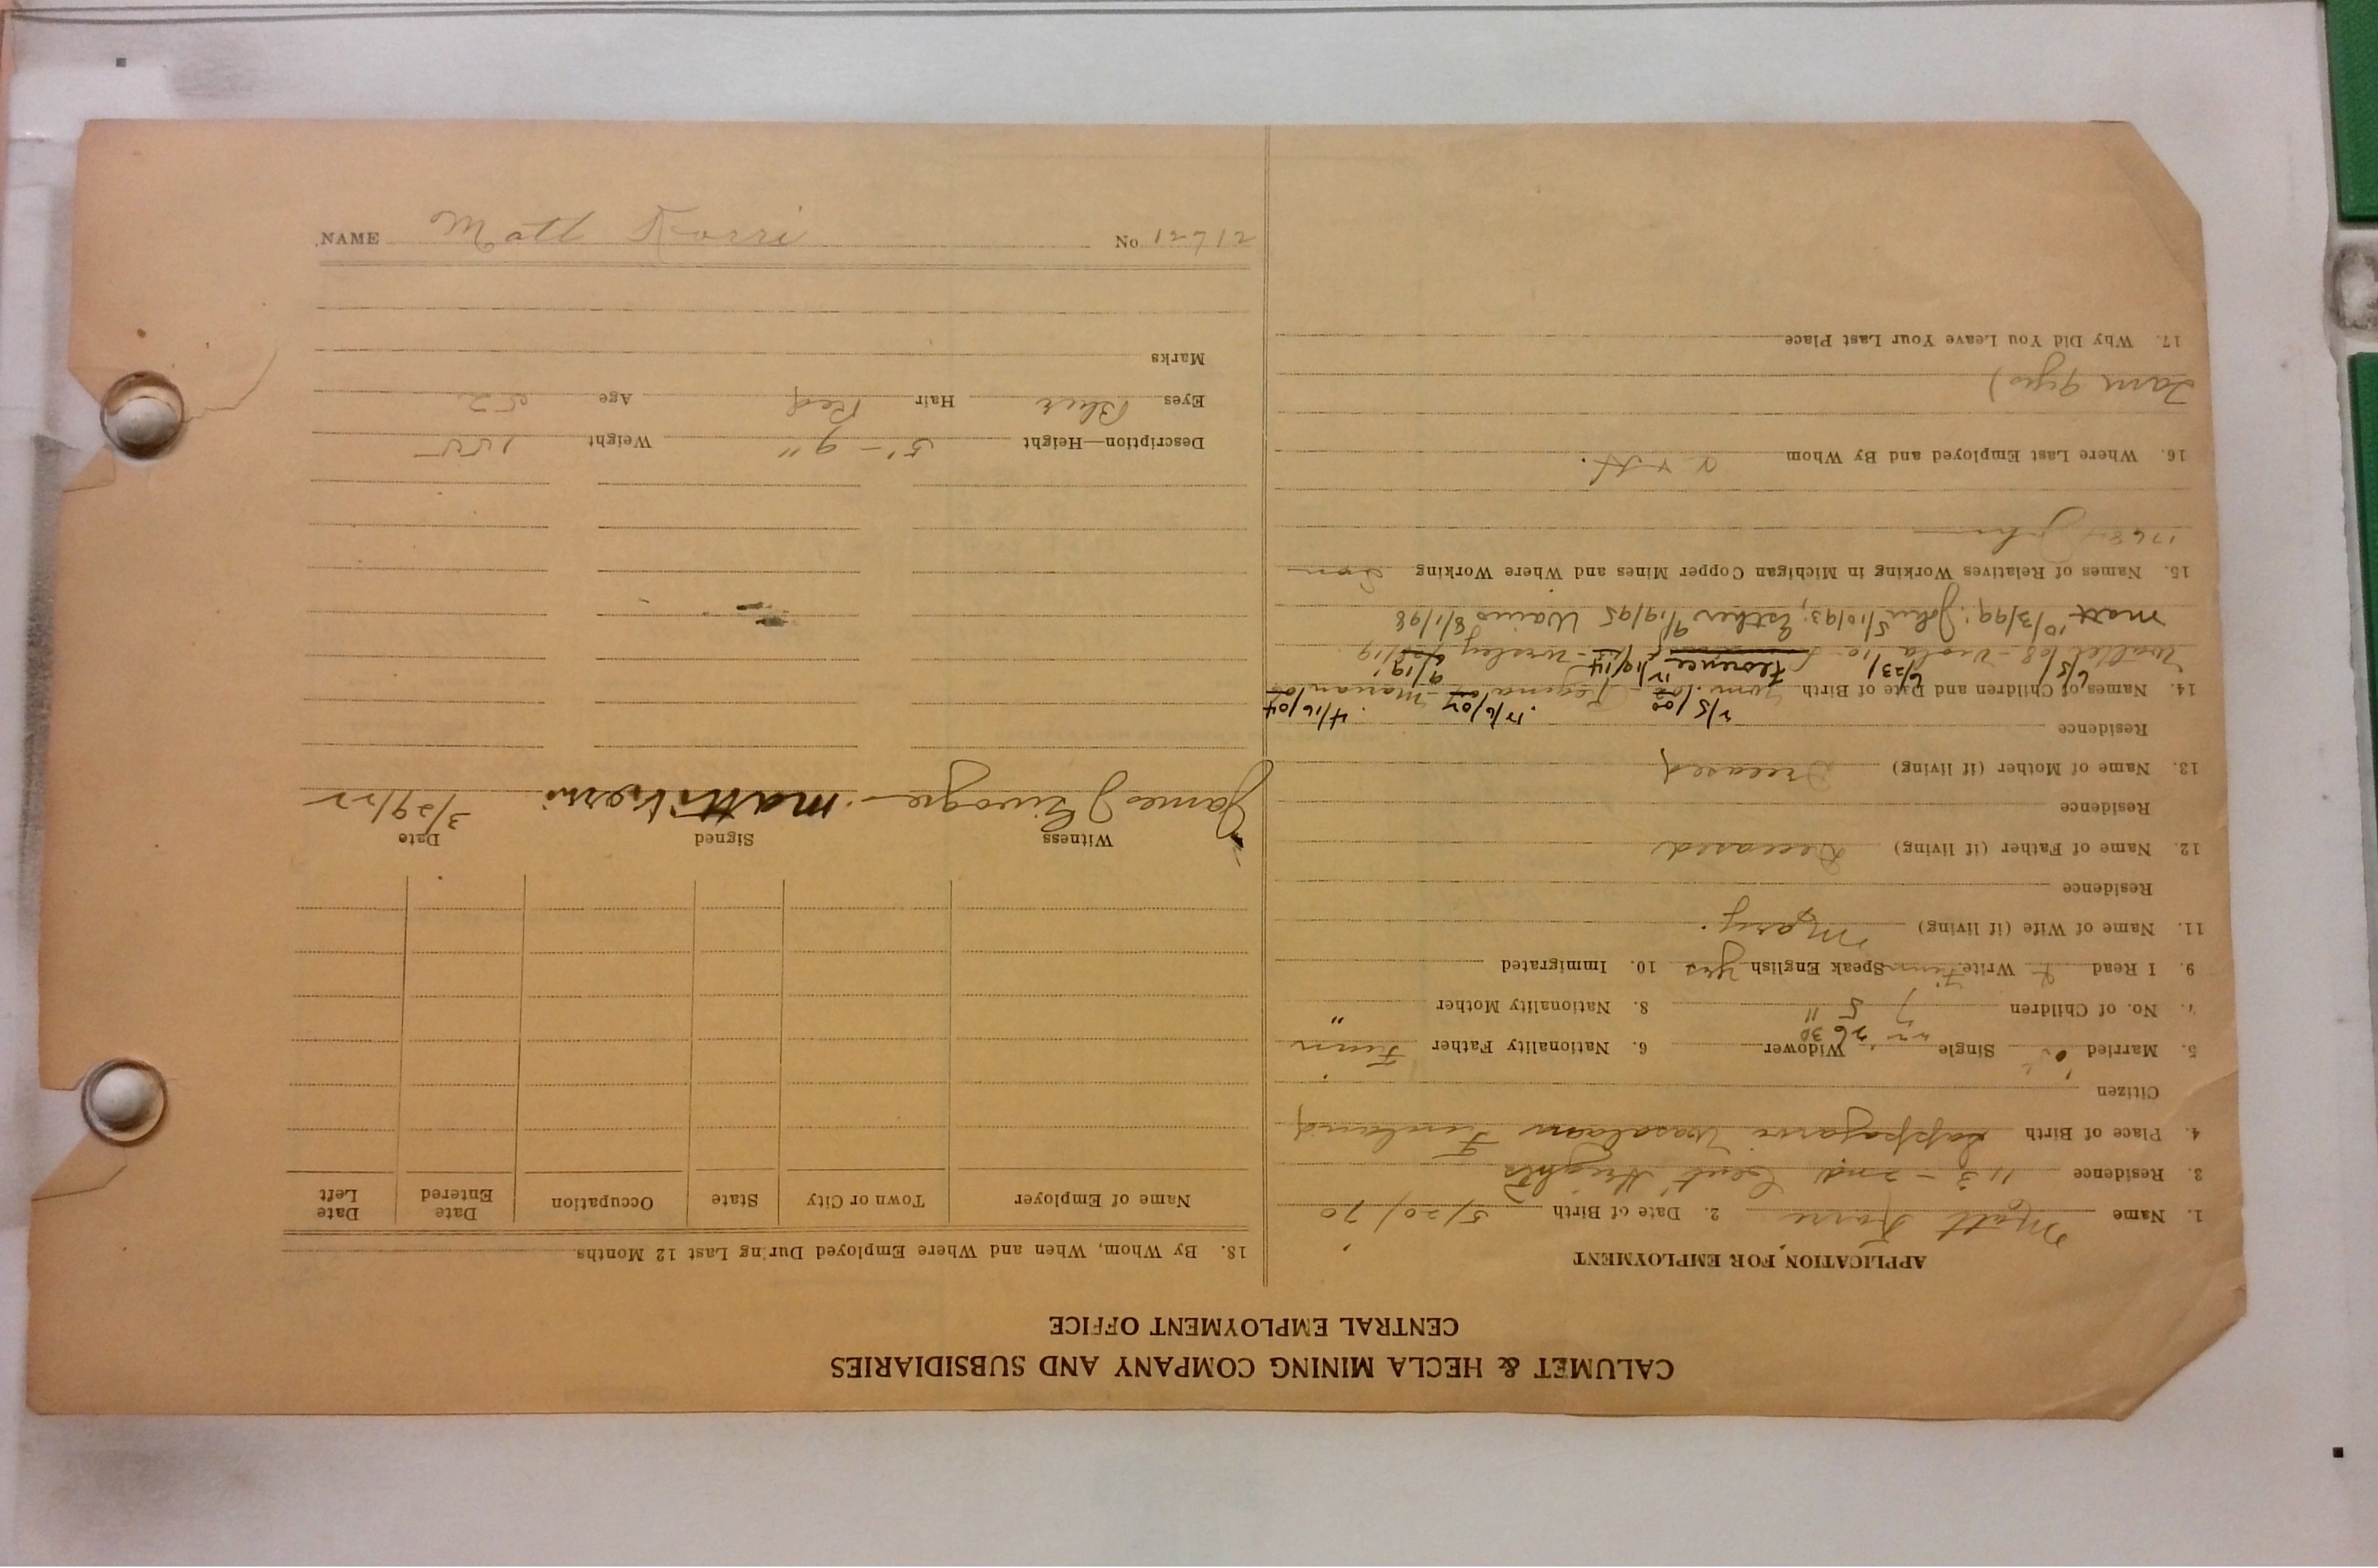 CALUMET & HECLA MINING COMPANY AND SUBSIDIARIES
CENTRAL EMPLOYMENT OFFICE
APPLICATION FOR EMPLOYMENT
1. Name Matt Korri 2. Date of Birth 5/20/70
3. Residence 113 - 2nd
4. Place of Birth Lappajarvi Finland
Citizen
5. Married Single Widower 6. Nationality Father Finn
26 30
7. No. of Children 7 5 11 8. Nationality Mother "
9. I Read & Write Finn Speak English Yes 10. Immigrated
11. Name of Wife (if living) Mary
Residence
12. Name of Father (if living) Deceased
Residence
13. Name of Mother (if living) Deceased
Residence
2/5/00 12/6/07 4/16/04
14. Names of Children and Date of Birth
6/5 6/23/ Florence 9/19
Matt 10/3/99; John 5/10/93; Esther 9/19/95 Waino 8/1/98
15. Names of Relatives Working in Michigan Copper Mines and Where Working Son
John
16. Where Last Employed and By Whom
17. Why Did You Leave Your Last Place
18. By Whom, When and Where Employed During Last 12 Months
Name of Employer Town or City State Occupation Date Entered Date Left
Witness Signed Date
James Matti Korri 3/29/22
Description—Height 5'-9" Weight 155
Eyes Blue Hair Red Age 52
Marks
NAME Matt Korri No. 12712